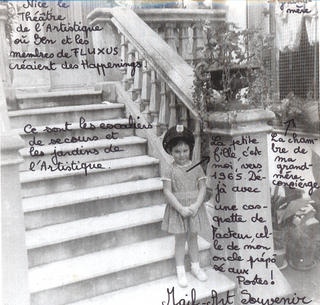 Nice le
Théâtre
de l'Artistique
où Ben et les
membres de FLUXUS
créaient des Happenings!
mère
Ce sont les escaliers
de secours et
les jardins de
l'Artistique.
La petite
fille c'est
moi vers
1965 Dé-
jà avec
une cas-
quette de
facteur cel-
le de mon
oncle prépo
sé aux
Postes!
La cham-
bre de
ma
grand-
mère
concierge
Mail-Art Souvenir